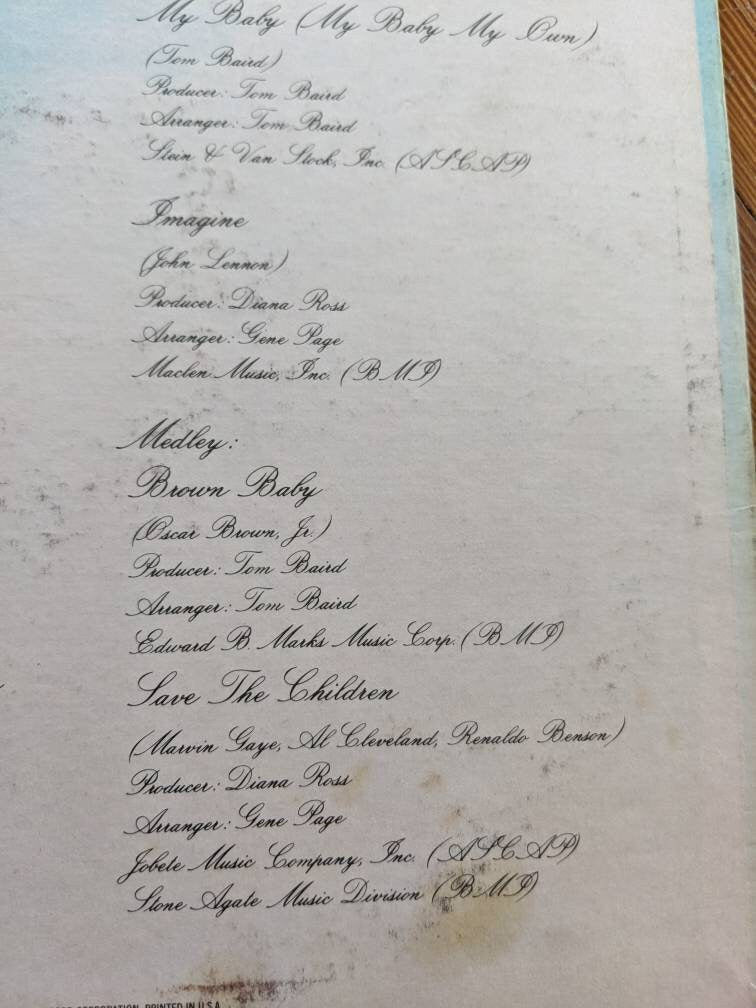 My Baby (My Baby My Own)
(Tom Baird)
Producer: Tom Baird
Arranger: Tom Baird
Stein & Van Stock, Inc. (ASCAP)
Imagine
(John Lennon)
Producer: Diana Ross
Arranger: Gene Page
Maclen Music, Inc. (BMI)
Medley:
Brown Baby
(Oscar Brown, Jr.)
Producer: Tom Baird
Arranger: Tom Baird
Edward B. Marks Music Corp. (BMI)
Save The Children
(Marvin Gaye, Al Cleveland, Renaldo Benson)
Producer: Diana Ross
Arranger: Gene Page
Jobete Music Company, Inc. (ASCAP)
Stone Agate Music Division (BMI)
CORPORATION, PRINTED IN U.S.A.